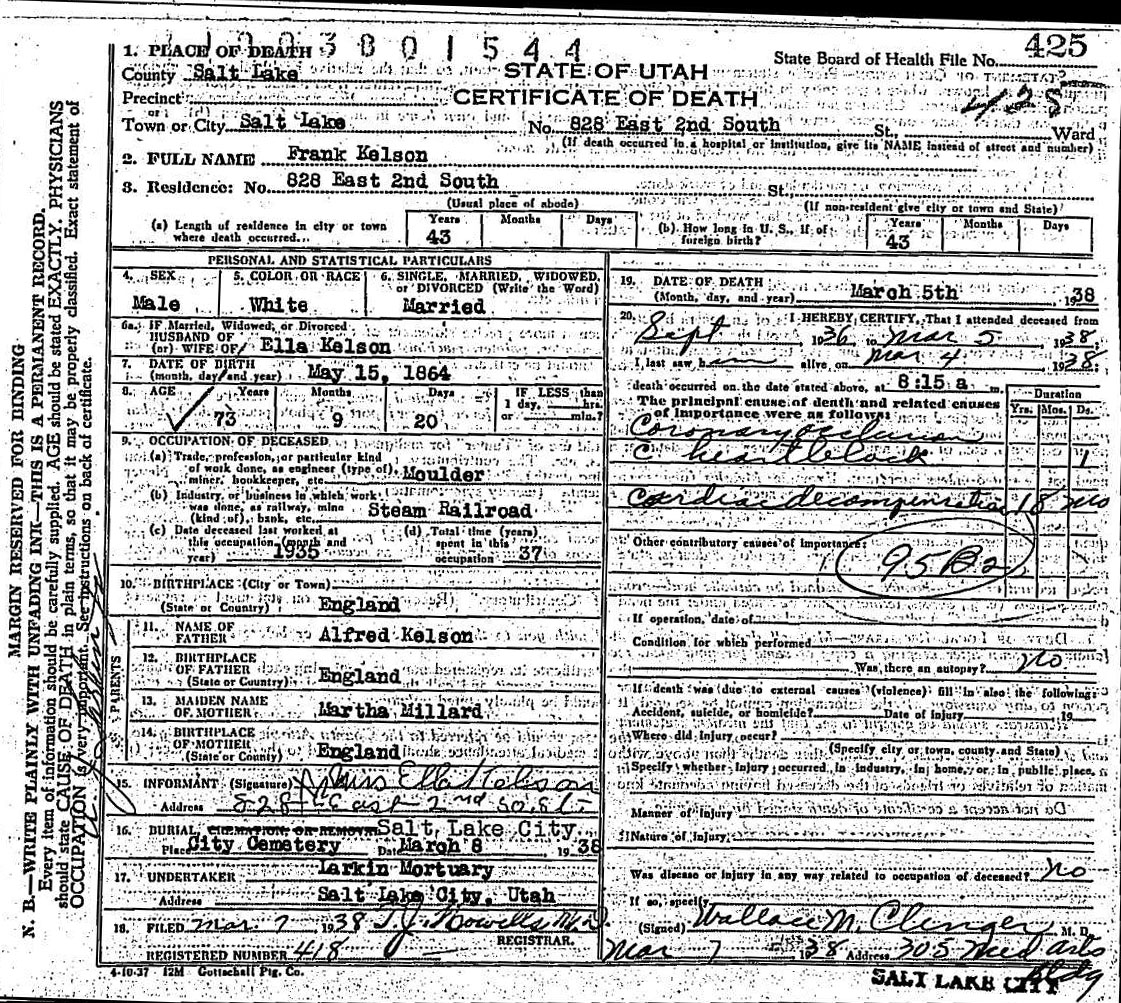 1003801544
State Board of Health File No. 425
1. PLACE OF DEATH
County Salt Lake
STATE OF UTAH
CERTIFICATE OF DEATH
425
Precinct
or
Town or City Salt Lake No. 828 East 2nd South St., Ward
(If death occurred in a hospital or institution, give its NAME instead of street and number)
2. FULL NAME Frank Kelson
3. Residence: No. 828 East 2nd South St.
(Usual place of abode) (If non-resident give city or town and State)
(a) Length of residence in city or town
where death occurred...
Years Months Days
43
(b) How long in U. S., if of
foreign birth?
Years Months Days
43
PERSONAL AND STATISTICAL PARTICULARS
4. SEX
Male
5. COLOR OR RACE
White
6. SINGLE, MARRIED, WIDOWED,
or DIVORCED (Write the Word)
Married
6a. IF Married, Widowed, or Divorced
HUSBAND OF
(or) WIFE OF Ella Kelson
7. DATE OF BIRTH
(month, day and year) May 15, 1864
8. AGE Years Months Days IF LESS than
1 day, hrs.
or min.?
73 9 20
9. OCCUPATION OF DECEASED
(a) Trade, profession, or particular kind
of work done, as engineer (type of),
miner, bookkeeper, etc. Moulder
(b) Industry or business in which work
was done, as railway, mine
(kind of), bank, etc. Steam Railroad
(c) Date deceased last worked at
this occupation (month and
year) 1935
(d) Total time (years)
spent in this
occupation 37
10. BIRTHPLACE (City or Town)
(State or Country) England
PARENTS
11. NAME OF
FATHER Alfred Kelson
12. BIRTHPLACE
OF FATHER
(State or Country) England
13. MAIDEN NAME
OF MOTHER Martha Millard
14. BIRTHPLACE
OF MOTHER
(State or Country) England
15. INFORMANT (Signature) Mrs Ella Kelson
Address 828 East 2nd So. St
16. BURIAL, CREMATION, OR REMOVAL Salt Lake City
Place City Cemetery Date March 8 1938
17. UNDERTAKER Larkin Mortuary
Address Salt Lake City, Utah
18. FILED Mar. 7 1938 T. J. Howells
REGISTRAR.
REGISTERED NUMBER 418
4-10-37 12M Gottschall Ptg. Co.
19. DATE OF DEATH
(Month, day, and year) March 5th 1938
20. I HEREBY CERTIFY, That I attended deceased from
Sept 1936 to Mar 5 1938:
I last saw him alive on Mar 4 1938:
death occurred on the date stated above, at 8:15 a m.
The principal cause of death and related causes
of importance were as follows:
Duration
Yrs. Mos. Ds.
Coronary occlusion
c heart block 1
Cardiac decompensation 18 mo
Other contributory causes of importance:
95B2
If operation, date of
Condition for which performed
Was there an autopsy? No
If death was due to external causes (violence) fill in also the following:
Accident, suicide, or homicide? Date of injury 19
Where did injury occur?
(Specify city or town, county and State)
Specify whether injury occurred in industry, in home, or in public place.
Manner of injury
Nature of injury
Was disease or injury in any way related to occupation of deceased? No
If so, specify
(Signed) Wallace M. Clinger M. D.
Mar 7 1938 Address 305 Med Arts
Bldg
SALT LAKE CITY
MARGIN RESERVED FOR BINDING
N. B.—WRITE PLAINLY WITH UNFADING INK—THIS IS A PERMANENT RECORD.
Every item of information should be carefully supplied. AGE should be stated EXACTLY. PHYSICIANS
should state CAUSE OF DEATH in plain terms, so that it may be properly classified. Exact statement of
OCCUPATION is very important. See instructions on back of certificate.